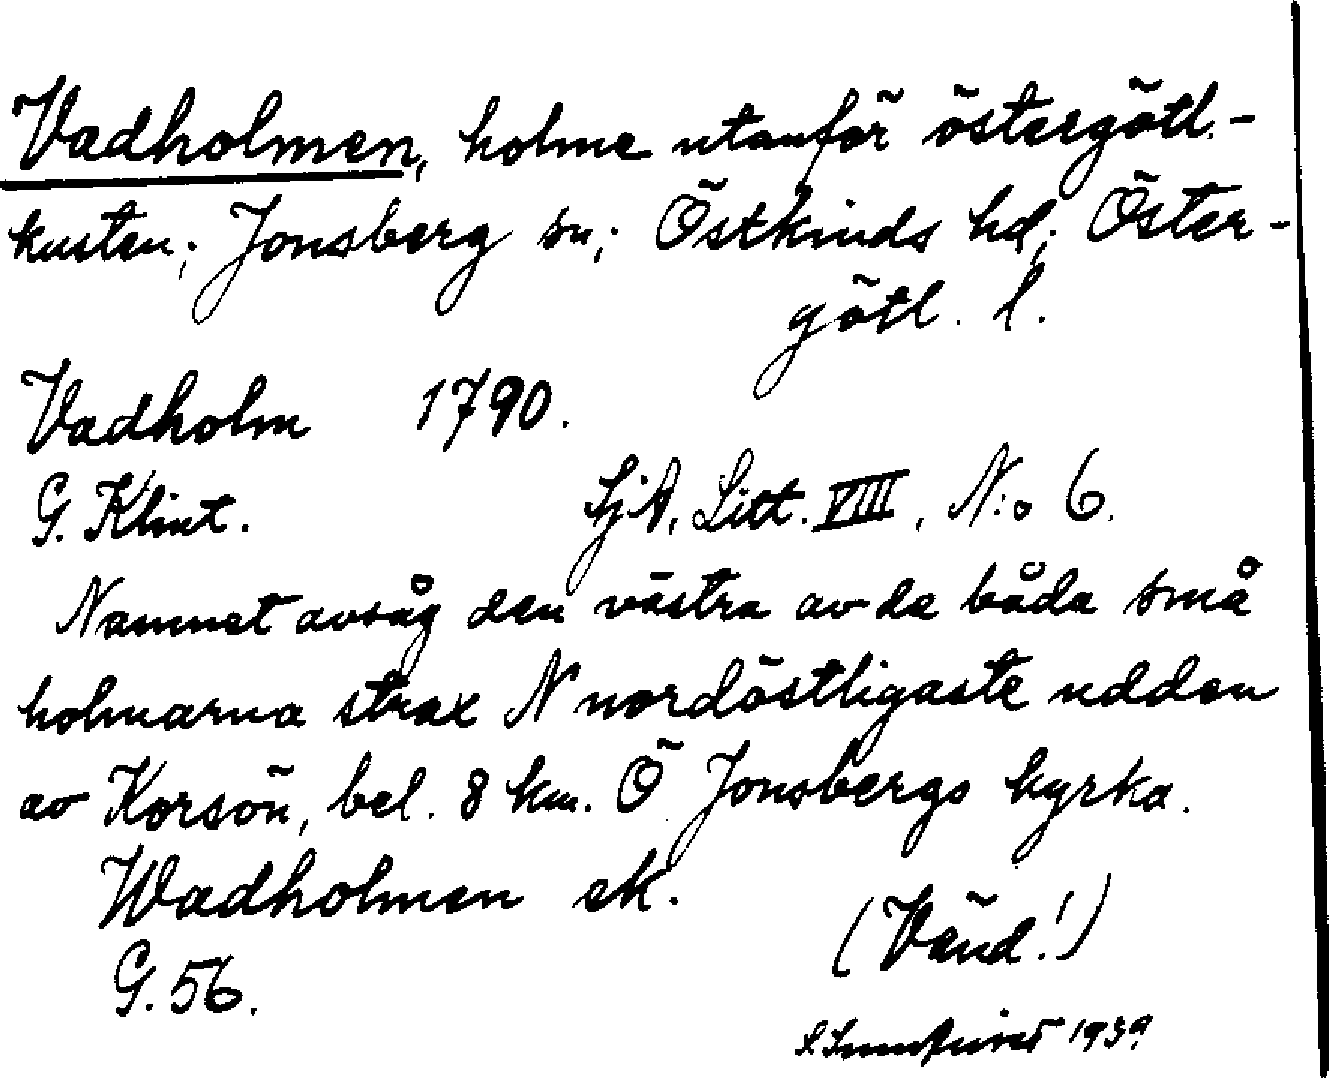 Vadholmen, holme utanför östergötl.-
kusten; Jonsberg sn; Östkinds hd; Öster-
götl. l.
Vadholm 1790.
G. Klint. SjA, Litt. VIII, N:o 6.
Namnet avsåg den västra av de båda små
holmarna strax N nordöstligaste udden
av Korsön, bel. 8 km. Ö Jonsbergs kyrka.
Wadholmen ek.
(Vänd!)
G. 56.
1939